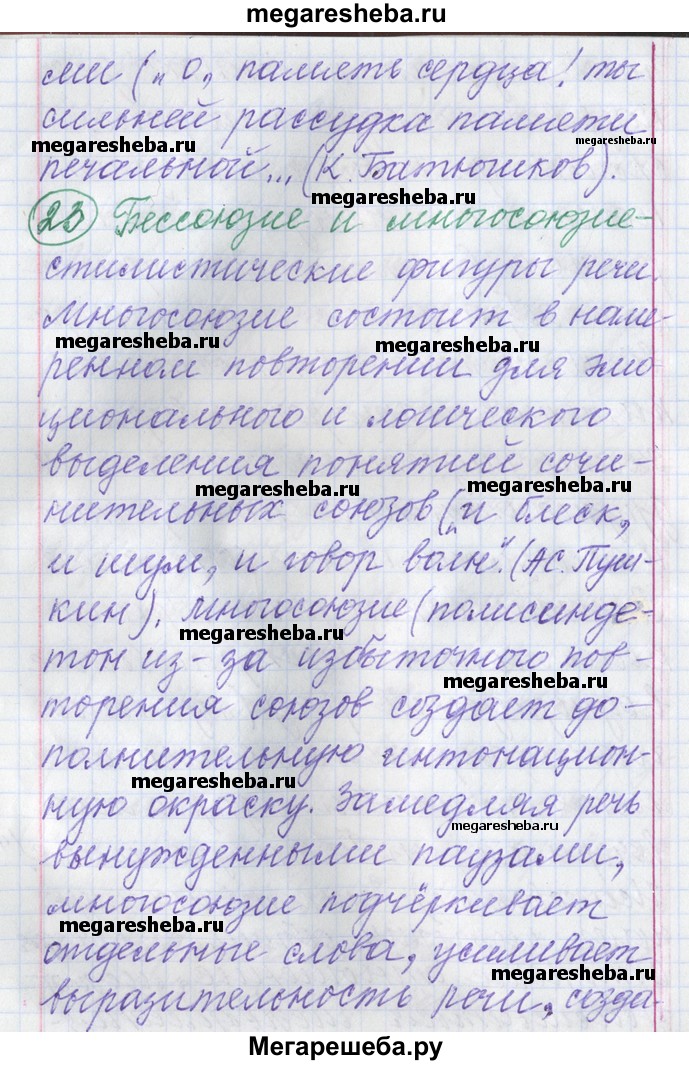 megaresheba.ru
ми („ О, память сердца! ты
сильней рассудка памяти
megaresheba.ru
печальной... (К. Батюшков).
23 Бессоюзие и многосоюзие-
стилистические фигуры речи.
Многосоюзие состоит в наме-
megaresheba.ru
ренном повторении для эмо
ционального и логического
выделения понятий сочи-
megaresheba.ru
megaresheba.ru
нительных союзов („и блеск,
и шум, и говор волн". (А.С. Пуш-
кин). Многосоюзие (полисинде-
megaresheba.ru
тон из-за избыточного пов-
megaresheba.ru
торения союзов создает до-
полнительную интонацион-
megaresheba.ru
ную окраску. Замедляя речь
megaresheba.ru
вынужденными паузами,
многосоюзие подчёркивает
megaresheba.ru
отдельные слова, усиливает
megaresheba.ru
выразительность речи, созда-
Мегарешеба.ру